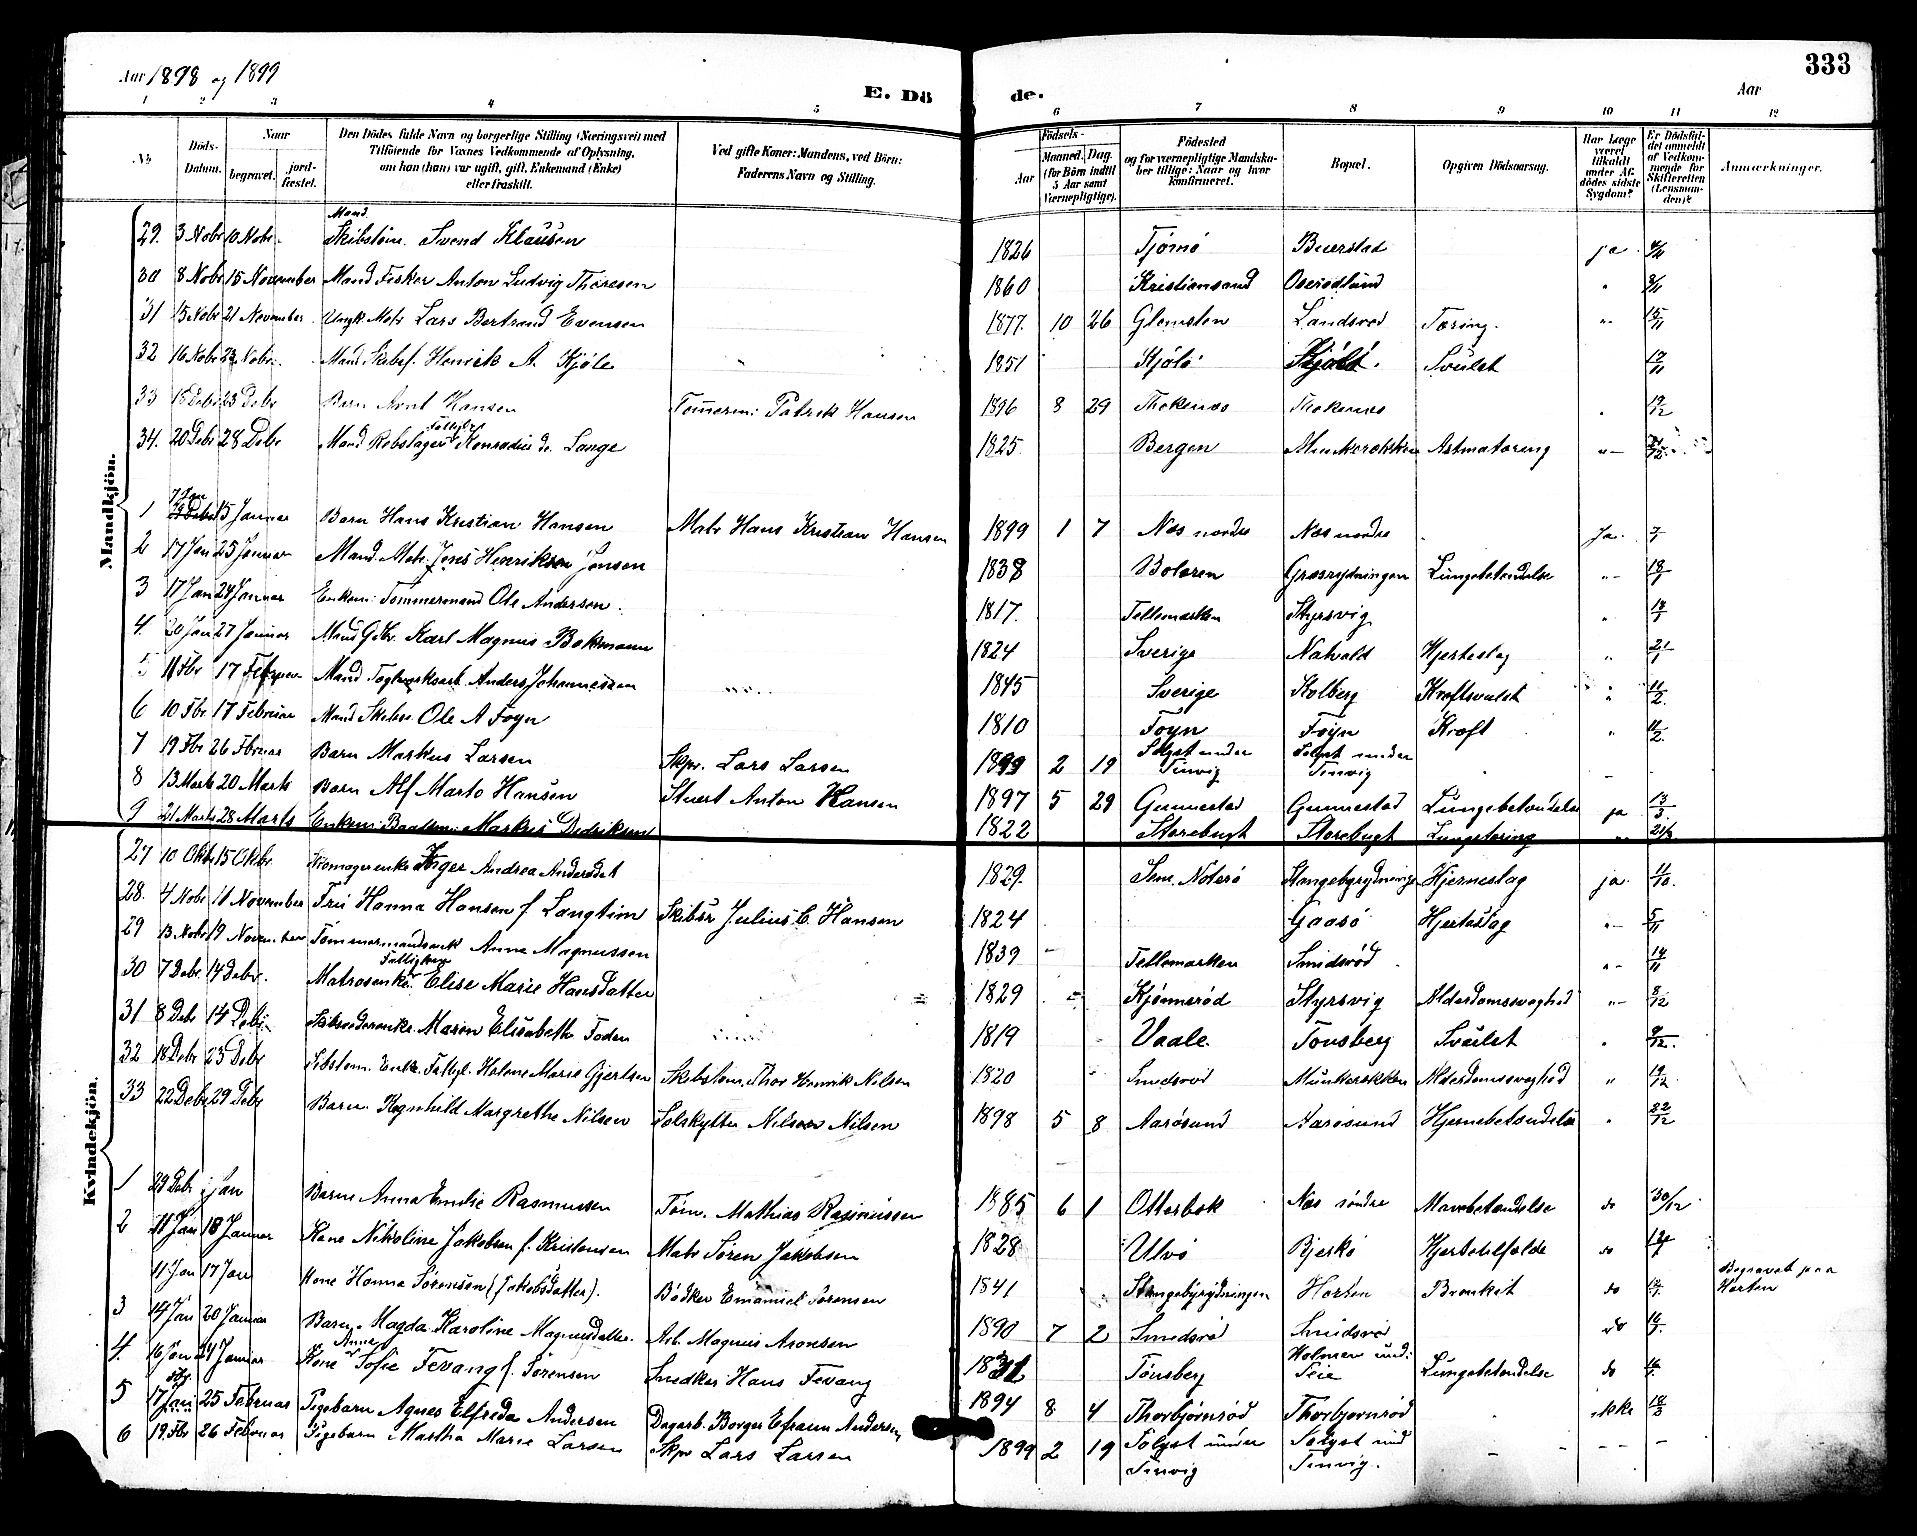 Aar 1898 og 1899
E. Dö de.
Aar
333
1 2 3 4 5 6 7 8 9 10 11 12
No
Döds-Datum.
Naar begravet. jord-fæstet.
Den Dödes fulde Navn og borgerlige Stilling (Næringsvei) med Tilföiende for Voxnes Vedkommende af Oplysning, om han (hun) var ugift, gift, Enkemand (Enke) eller fraskilt.
Ved gifte Koner: Mandens, ved Börn: Faderens Navn og Stilling.
Födsels- Aar Maaned. Dag. (for Börn indtil 5 Aar samt Værnepligtige).
Födested og for værnepligtige Mandskaber tillige: Naar og hvor konfirmeret.
Bopæl.
Opgiven Dödsaarsag.
Har Læge været tilkaldt under Afdödes sidste Sygdom?
Er Dödsfaldet anmeldt af Vedkommende for Skifteretten (Lensmanden)?
Anmærkninger.
Mandkjön.
29. 3 Nobr 10 Nobr. Mand Skibstøm. Svend Klausen 1826 Tjømø Buerstad ja 4/11
30 8 Nobr 15 November Mand Fisker Anton Ludvig Thoresen 1860 Kristiansand Oserødlund " 8/11
31 15 Nobr 21 November Ungk Matr Lars Bertrand Evensen 1877. 10 26 Glemsten Landsrød Tæring. " 15/11
32 16 Nobr 22 Nobr. Mand Skibsf. Henrik A. Kjøle 1851 Kjølö Kjølö. Svulst 17/11
33 18 Debr 23 Debr Barn Arnt Hansen Tømerm: Patrik Hansen 1896 8 29 Thokenes Thokenes 19/12
34. 20 Debr 28 Debr Mand Rebslager Fattigly Konradius de Lange 1825 Bergen Munkerekken Astmatæring "
1 7 Jan 15 Januar Barn Hans Kristian Hansen Matr Hans Kristian Hansen 1899 1 7 Nes nordre Nes nordre Ja.
2 17 Jan 25 Januar Mand Matr. Jens Henriksen Jensen 1838 Bolæren Græsrydningen Lungebetændelse " 18/1
3 17 Jan 24 Januar Enkem: Tømmermand Ole Andersen. 1817. Tellemarken Styrsvig " 18/1
4. 20 Jan 27 Januar Mand Gbr. Karl Magnus Bokmann 1824 Sverige Natvald Hjerteslag " 21/1
5 11 Fbr 17 Februar Mand Teglverksarb. Anders Johannessen 1845 Sverige Kolberg Kræftsvulst " 11/2
6 10 Fbr 17 Februar Mand Skibsr Ole A Foyn 1810 Foyn Foyn Kræft " 11/2
7 19 Fbr 26 Fbruar Barn Markus Larsen Skpr. Lars Larsen 1899 2 19 Solyst under Tinvig Solyst under Tinvig
8 13 Marts 20 Marts Barn Alf Marto Hansen Stuert Anton Hansen 1897 5 29 Gunnestad Gunnestad Lungebetændelse ja 13/3
9 21 Marts 28 Marts Enkem: Baadsm: Markus Dedriksen 1822 Storebugt Storebugt Lungetæring " 21/3
Kvindekjön.
27 10 Oktb 15 Oktbr. Skomagerenke Inger Andrea Andersdat 1829. Sem. Nøterø Stangebyrydningen Hjerneslag ja. 11/10.
28. 4 Nobr 11 November Fru Hanna Hansen f. Langtim Skibsr Julius C. Hansen 1824 Gaasö Hjerteslag " 5/11
29 13 Nobr 19 November Tømmermandsenk Anne Magnussen 1839 Tellemarken Smidsrød " 14/11
30 7 Debr. 14 Debr. Matrosenke Fattiglem Elise Marie Hansdatter 1829 Kjønnerød Styrsvig Alderdomssvaghed " 8/12
31 8 Debr 14 Debr. Skibsrederenke. Maren Elisabeth Foden 1819 Vaale. Tønsberg Svulst " 9/12.
32 18 Debr 23 Debr Skbstøm. Enke Fattigl. Helene Marie Gjertsen Skibstøm. Thor Henrik Nilsen 1820 Smedsrød Munkerekken Alderdomssvaghed " 19/12
33 22 Debr 29 Debr Barn. Ragnhild Margrethe Nilsen Selskytter Nils Nilsen 1898 5 8 Aarøsund Aarøsund Hjernebetændelse " 22/12
1 29 Debr Jan Barn Anna Emilie Rasmussen Tøm. Mathias Rasmussen 1885 6 1 Otterbek Nes søndre Mavebetændelse do 30/12
2 11 Jan 18 Januar Kone Nikoline Jakobsen f. Kristensen Matr Søren Jakobsen 1828 Ulvö Bjerkö Hjertefeil do
11 Jan 17 Jan Kone Hanna Sørensen (Jakobsdatter). Bødker Emanuel Sørensen 1841 Stangebyrydningen Horten Bronkit do Begravet paa Horten
3 14 Jan 20 Januar Barn. Magda Karoline Magnusdatter Arb. Magnus Aronsen 1890 7 2 Smedsrød Smidsrød do
4. 16 Jan 24 Januar Kone Anne Sofie Fevang f. Sørensen Snedker Hans Fevang 1831 Tønsberg Holmen und: Teie Lungebetændelse do
5 17 Jan Fbr. 25 Februar Pigebarn Agnes Elfrida Andersen Dagarb. Borger Efraim Andersen 1894 8 4 Thorbjørnrød Thorbjørnrød ikke
6 19. Fbr 26 Februar Pigebarn Martha Marie Larsen Skpr Lars Larsen 1899 2 19 Solyst under Tinvig Solyst und Tinvig.